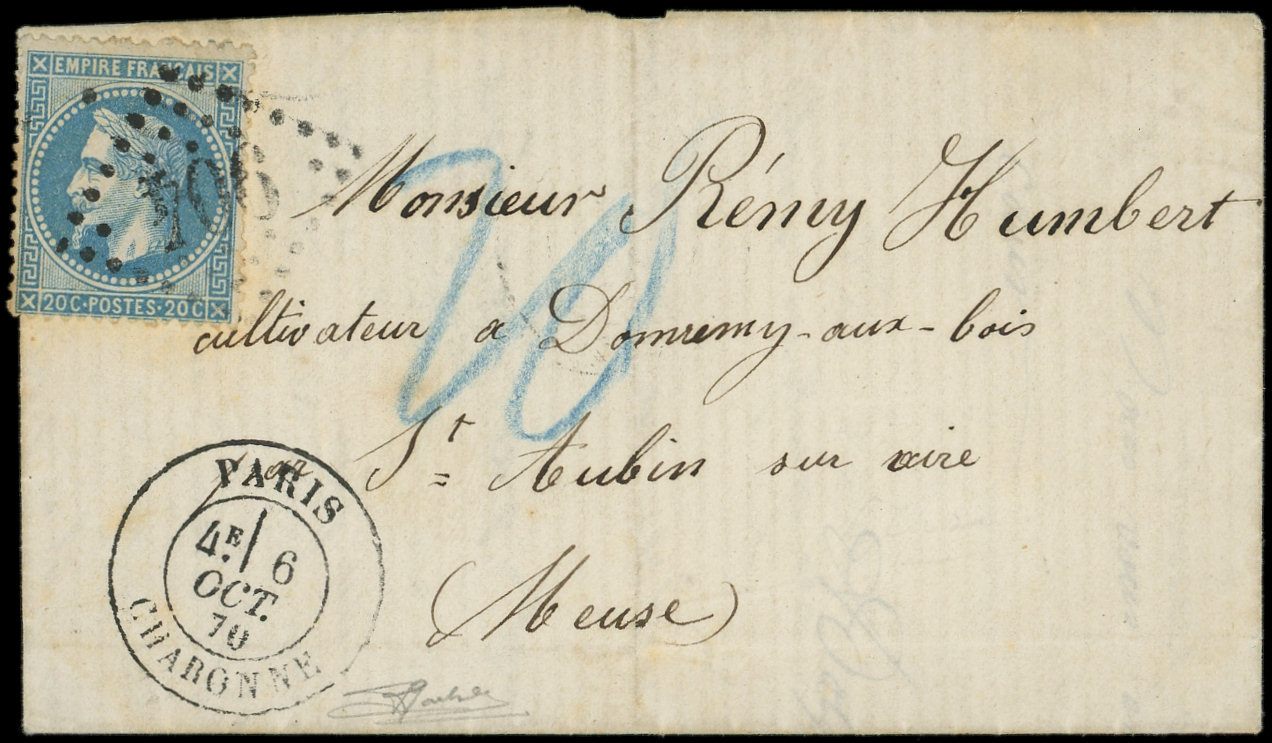 EMPIRE FRANÇAIS
20C · POSTES · 20C
Monsieur Rémy Humbert
cultivateur a Domremy-aux-bois
par St Aubin sur aire
(Meuse)
20
PARIS
4E 6
OCT.
70
CHARONNE